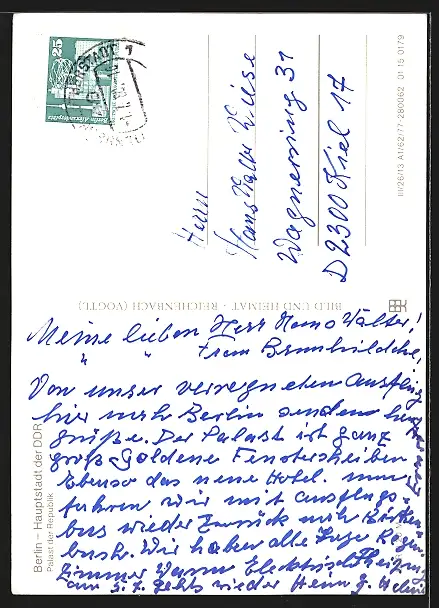 25
Berlin, Alexanderplatz
Herrn
Hans Walter Wiese
Wagnerring 31
D 2300 Kiel 17
III/26/13 A1/62/77-280062 01 15 0179
BILD UND HEIMAT · REICHENBACH (VOGTL.)
Berlin – Hauptstadt der DDR
Palast der Republik
Meine lieben Herr Hans Walter!
" " Frau Brunhildchen!
Von unser verregneten Ausflug
hier nach Berlin senden
grüße. Der Palast ist ganz
groß Goldene Fensterscheiben
Ebenso das neue Hotel. nun
fahren wir mit ausflugs-
bus wieder zurück nach
Wir haben alle Tage Regen
Zimmer Warm Elektrisch
am 5.7. gehts wieder Heim